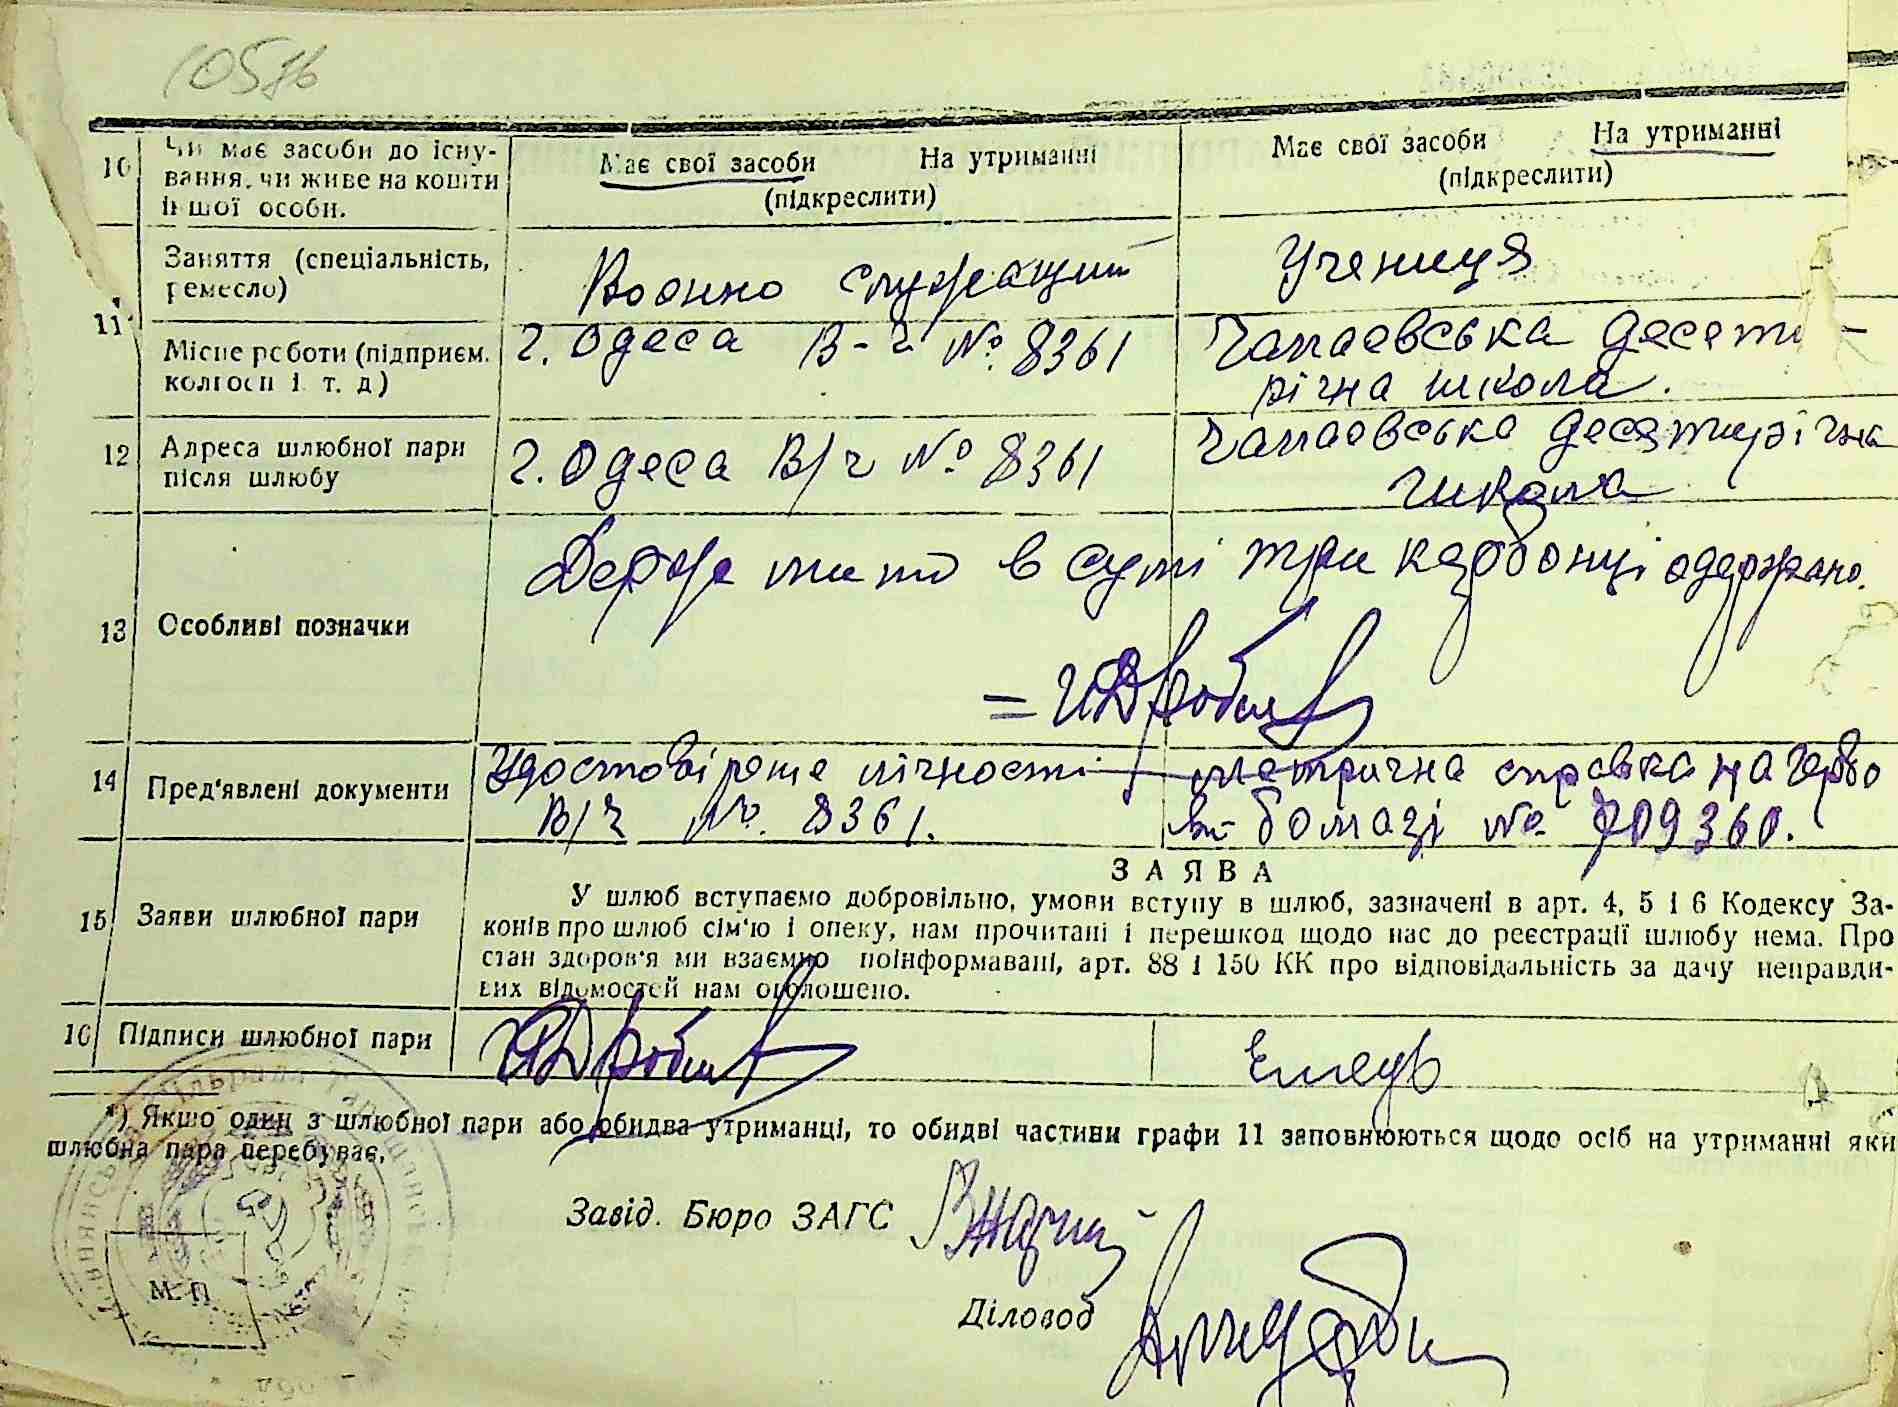 10
Чи має засоби до існу-
вання, чи живе на кошти
іншої особи.
Має свої засоби На утриманні
(підкреслити)
Має свої засоби На утриманні
(підкреслити)
11
Заняття (спеціальність,
ремесло)
Воєнно служащий
Учениця
Місце роботи (підприєм.
колгосп і. т. д)
г. Одеса В-ч №. 8361
Чапаевська десяти-
річна школа.
12
Адреса шлюбної пари
після шлюбу
г. Одеса В/ч № 8361
Чапаевська десятирічна
школа
13
Особливі позначки
Держ мито в сумі три карбонці одержано.
14
Пред'явлені документи
Удостовіреніе лічності
В/ч №. 8361.
метрична справка на гербо
вій бомазі № 709360.
15
Заяви шлюбної пари
ЗАЯВА
У шлюб вступаємо добровільно, умови вступу в шлюб, зазначені в арт. 4, 5 і 6 Кодексу За-
конів про шлюб сім'ю і опеку, нам прочитані і перешкод щодо нас до реєстрації шлюбу нема. Про
стан здоров'я ми взаємно поінформавані, арт. 88 і 150 КК про відповідальність за дачу неправди-
вих відомостей нам оголошено.
16
Підписи шлюбної пари
*) Якшо один з шлюбної пари або обидва утриманці, то обидві частини графи 11 заповнюються щодо осіб на утриманні яки
шлюбна пара перебуває.
Завід. Бюро ЗАГС
М. П
Діловод